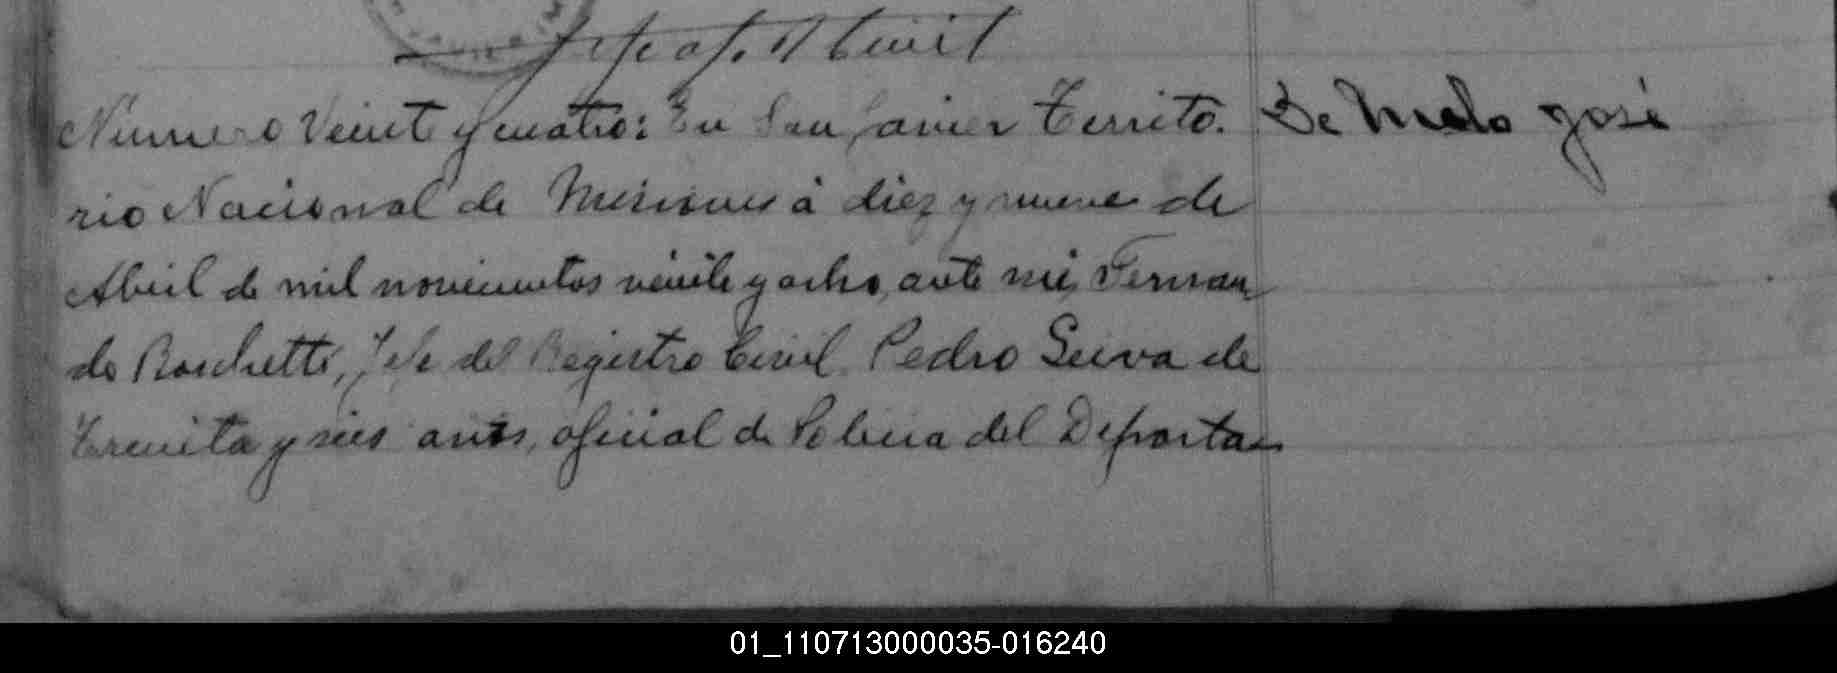 Jefe of. R Civil
Número Veinte y cuatro: En San Javier Territo-
rio Nacional de Misiones à diez y nueve de
Abril de mil novecientos veinte y ocho, ante mi, Fernan
do Boschetti, Jefe del Registro Civil, Pedro Leiva de
treinta y seis años, oficial de Policia del Departa-
De Melo José
01_110713000035-016240